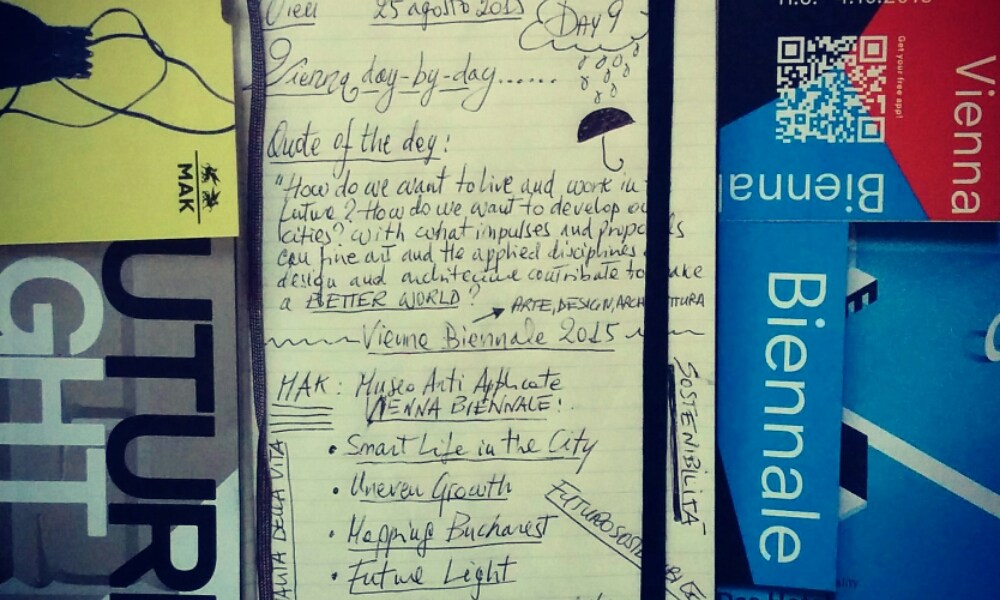 25 agosto 2015
DAY 9
Vienna day-by-day......
Quote of the day:
"How do we want to live and work in
future? How do we want to develop
cities? With what impulses and
can fine art and the applied disciplines
design and architecture contribute to make
a BETTER WORLD?
ARTE, DESIGN, ARCHITETTURA
Vienna Biennale 2015
MAK: Museo Arti Applicate
VIENNA BIENNALE:
• Smart Life in the City
• Uneven Growth
• Mapping Bucharest
• Future Light
SOSTENIBILITÀ
DELLA VITA
MAK
UTURE
GHT
Get your free app!
Vienna
Biennal
Biennale